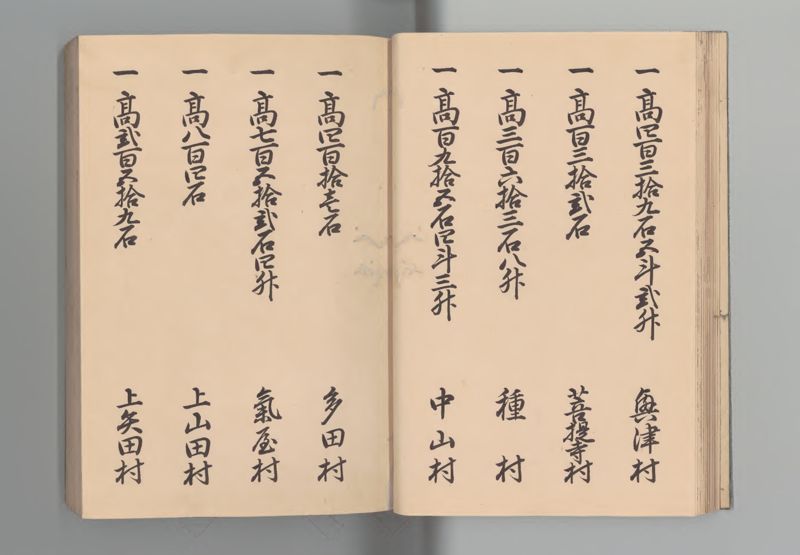 一 高四百三拾九石五斗弐升 興津村
一 高百三拾弐石 菩提寺村
一 高三百六拾三石八升 種村
一 高百九拾五石四斗三升 中山村
一 高四百拾壱石 多田村
一 高七百五拾弐石四升 氣屋村
一 高八百四石 上山田村
一 高弐百五拾九石 上矢田村